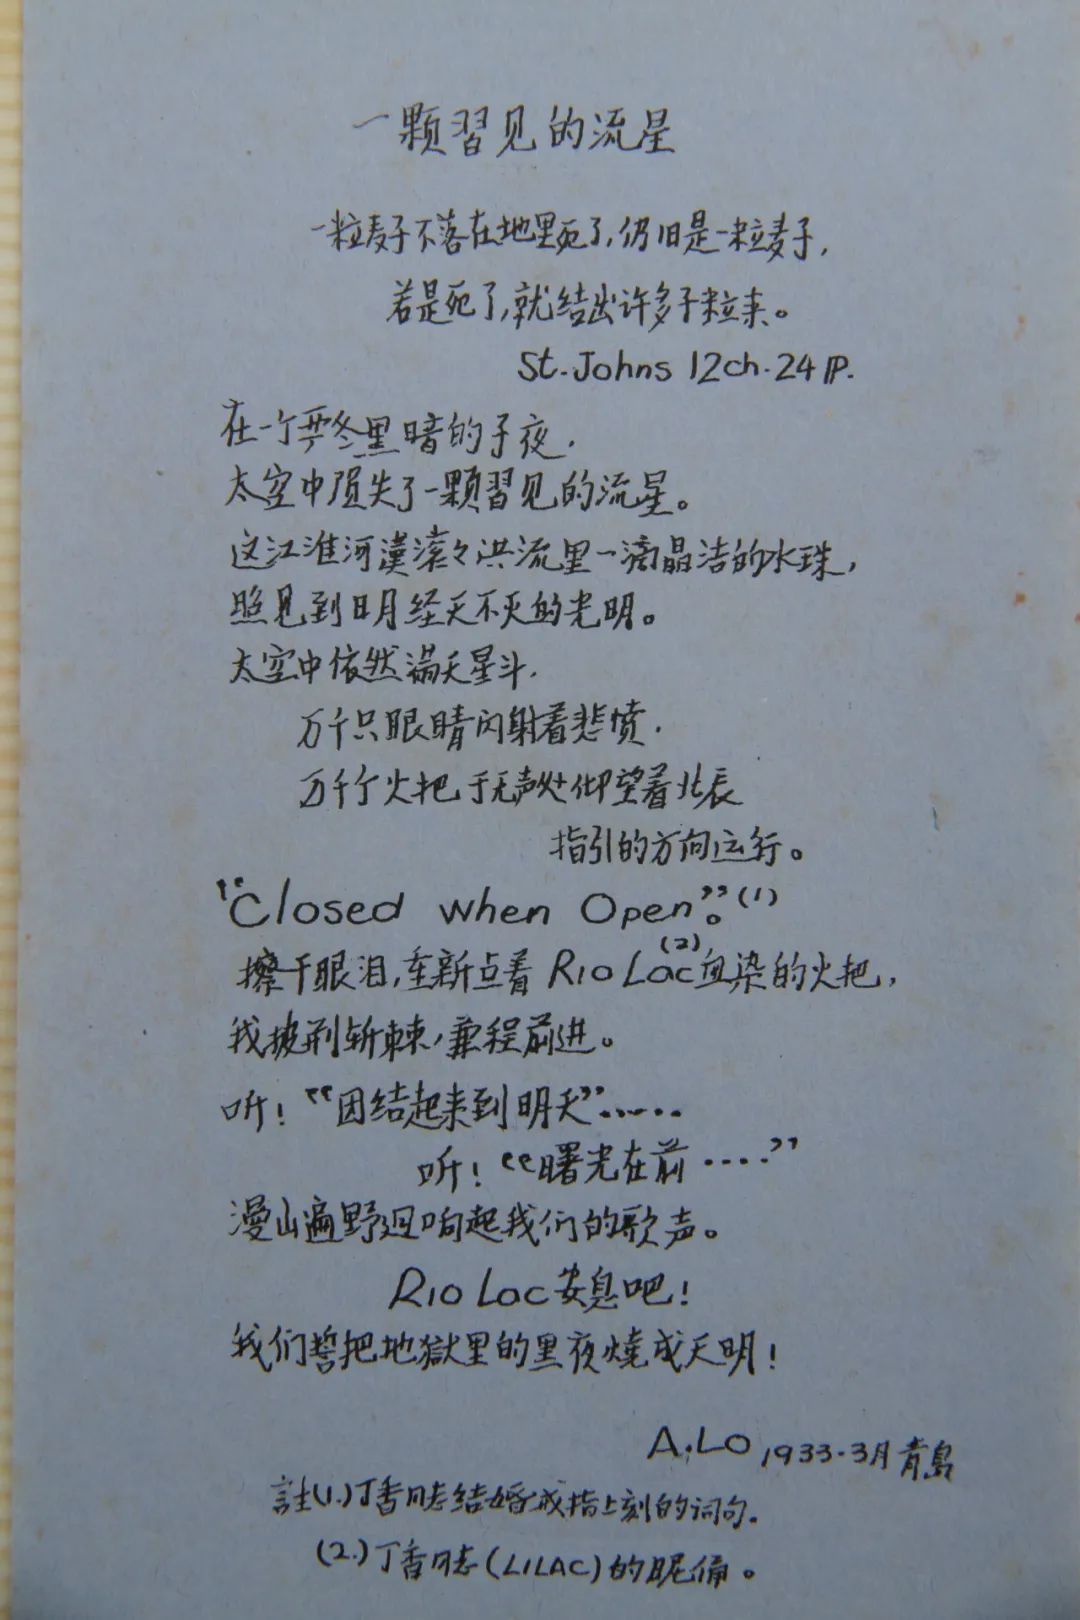 一颗習见的流星
一粒麦子不落在地里死了,仍旧是一粒麦子,
若是死了,就结出许多子粒来。
St.Johns 12ch.24 P.
在一个严冬黑暗的子夜.
太空中陨失了一颗習见的流星。
这江淮河漢滚々洪流里一滴晶洁的水珠,
照见到日月经天不灭的光明。
太空中依然满天星斗.
万千只眼睛闪射着悲愤.
万千个火把于无声处仰望着北辰
指引的方向运行。
“Closed when Open”。(1)
擦干眼泪,重新点着 Rio Lac(2)血染的火把,
我披荆斩棘,兼程前进。
听!“团结起来到明天”......
听!“曙光在前....”
漫山遍野迴响起我们的歌声。
Rio Lac安息吧!
我们誓把地獄里的黑夜燒成天明!
A.Lo 1933.3月青島
註(1.)丁香同志结婚戒指上刻的词句.
(2.)丁香同志(LILAC)的昵偁。